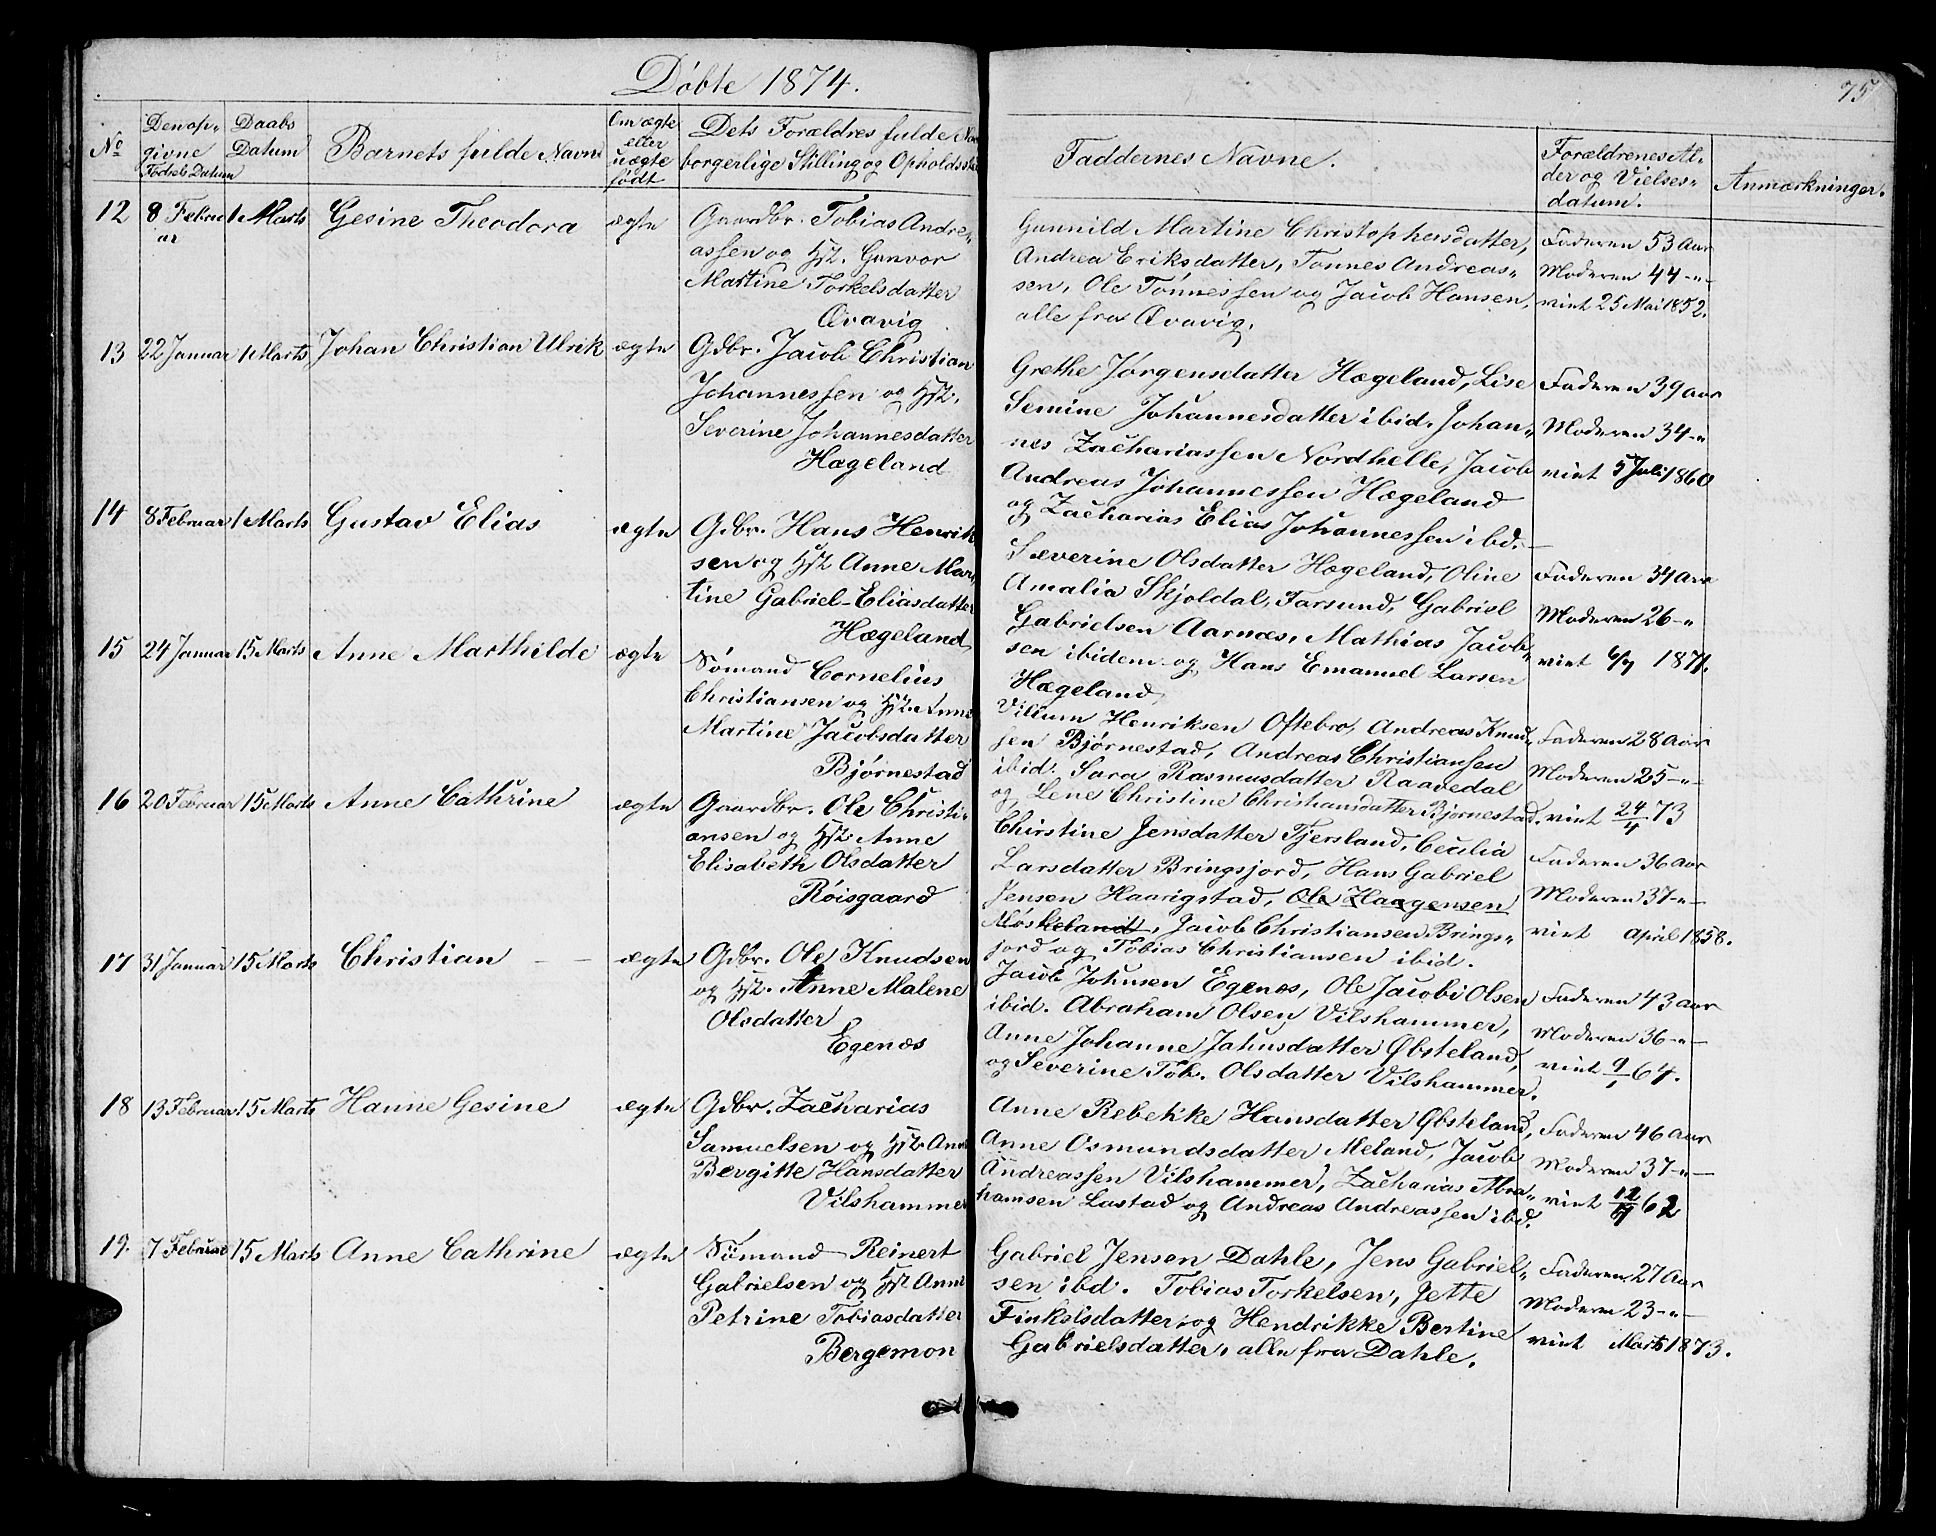 Døbte 1874.
75
No
Den opgivne Fødsels Datum
Daabs Datum
Barnets fulde Navne
Om ægte eller uægte født
Dets Forældres fulde Nav
borgerlige Stilling og Opholdsste
Faddernes Navne.
Forældrenes Al-
der og Vielses-
datum.
Anmærkninger.
12 8 Febru 1 Marts Gesine Theodora ægte Gaardbr. Tobias Andre-
ar
assen og Hst. Gunvor
Martine Torkelsdatter
Qvavig
Gunnild Martine Christophersdatter,
Andrea Eriksdatter, Tønnes Andreas-
sen, Ole Tønnessen og Jacob Hansen,
alle fra Qvavig.
Faderen 53 Aar
Moderen 44 -"-
viet 25 Mai 1852.
13 22 Januar 1 Marts Johan Christian Ulrik ægte Gdbr. Jacob Christian
Johannessen og Hst.
Severine Johannesdatter
Hægeland
Grethe Jørgensdatter Hægeland, Lise
Semine Johannesdatter ibid. Johan-
nes Zachariassen Nordhelle, Jacob
Andreas Johannessen Hægeland
og Zacharias Elias Johannessen ibd.
Faderen 39 aar
Moderen 34 -"
viet 5 Juli 1860
14 8 Februar 1 Marts Gustav Elias ægte Gdbr. Hans Henrik
sen og Hst Anne Mar
tine Gabriel-Eliasdatter
Hægeland
Severine Olsdatter Hægeland, Oline
Amalia Skjoldal, Farsund, Gabriel
Gabrielsen Aarnæs, Mathias Jacob-
sen ibidem og Hans Emanuel Larsen
Hægeland,
Faderen 34 aar
Moderen 26 -"
viet 6/7 1871.
15 24 Januar 15 Marts Anne Marthilde ægte Sømand Cornelius
Christiansen og Hst. Anne
Martine Jacobsdatter
Bjørnestad
Vilium Henriksen Oftebro, Andreas Knud-
sen Bjørnestad, Andreas Christiansen
ibid. Sara Rasmusdatter Raavedal
og Lene Christine Christiansdatter Bjørnestad.
Faderen 28 Aar
Moderen 25 -"-
viet 24/4 73
16 20 Februar 15 Marts Anne Cathrine ægte Gaardbr. Ole Christi-
ansen og Hst. Anne
Elisabeth Olsdatter
Røisgaard
Chirstine Jensdatter Fjersland, Cecilia
Larsdatter Bringsjord, Hans Gabriel
Jensen Haarigstad, Ole Haagensen
Møskeland, Jacob Christiansen, Brings-
jord og Tobias Christiansen ibid.
Faderen 36 aar
Moderen 37 -"-
viet April 1858.
17 31 Januar 15 Marts Christian ægte Gdbr. Ole Knudsen
og Hst. Anne Malene
Olsdatter
Egenæs
Jacob Johnsen Egenæs, Ole Jacobi Olsen
ibid. Abraham Olsen Vilshammer,
Anne Johanne Jahnsdatter Øbsteland,
og Severine Tob. Olsdatter Vilshammer.
Faderen 43 aar
Moderen 36 -"-
viet 9/1 64.
18 13 Februar 15 Marts Hanne Gesine ægte Gdbr. Zacharias
Samuelsen og Hst. Ann
Bergitte Hansdatter
Vilshammer
Anne Rebekke Hansdatter Øbsteland,
Anne Osmundsdatter Meland, Jacob
Andreassen Vilshammer, Zacharias Abra-
hamsen Lastad og Andreas Andreassen ibd.
Faderen 46 Aar
Moderen 37 -"-
viet 62
19. 7 Februar 15 Marts Anne Cathrine ægte Sømand Reinert
Gabrielsen og Hst Anne
Petrine Tobiasdatter
Bergemon
Gabriel Jensen Dahle, Jens Gabriel-
sen ibd. Tobias Torkelsen, Jette
Finkelsdatter, og Hendrikke Bertine
Gabrielsdatter, alle fra Dahle.
Faderen 27 Aar
Moderen 23 -"-
viet Marts 1873.